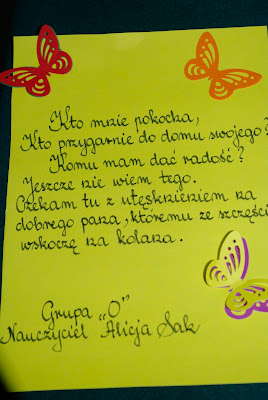 Kto mnie pokocha,
Kto przygarnie do domu swojego?
Komu mam dać radość?
Jeszcze nie wiem tego.
Czekam tu z utęsknieniem na
dobrego pana, któremu ze szczęści
wskoczę na kolana.
Grupa „O”
Nauczyciel Alicja Sak